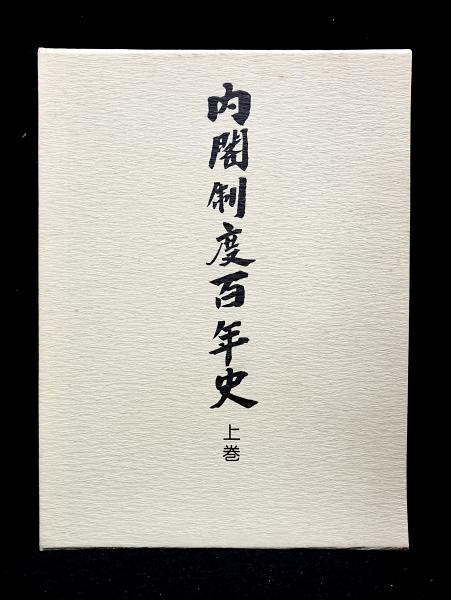 内閣制度百年史
上巻